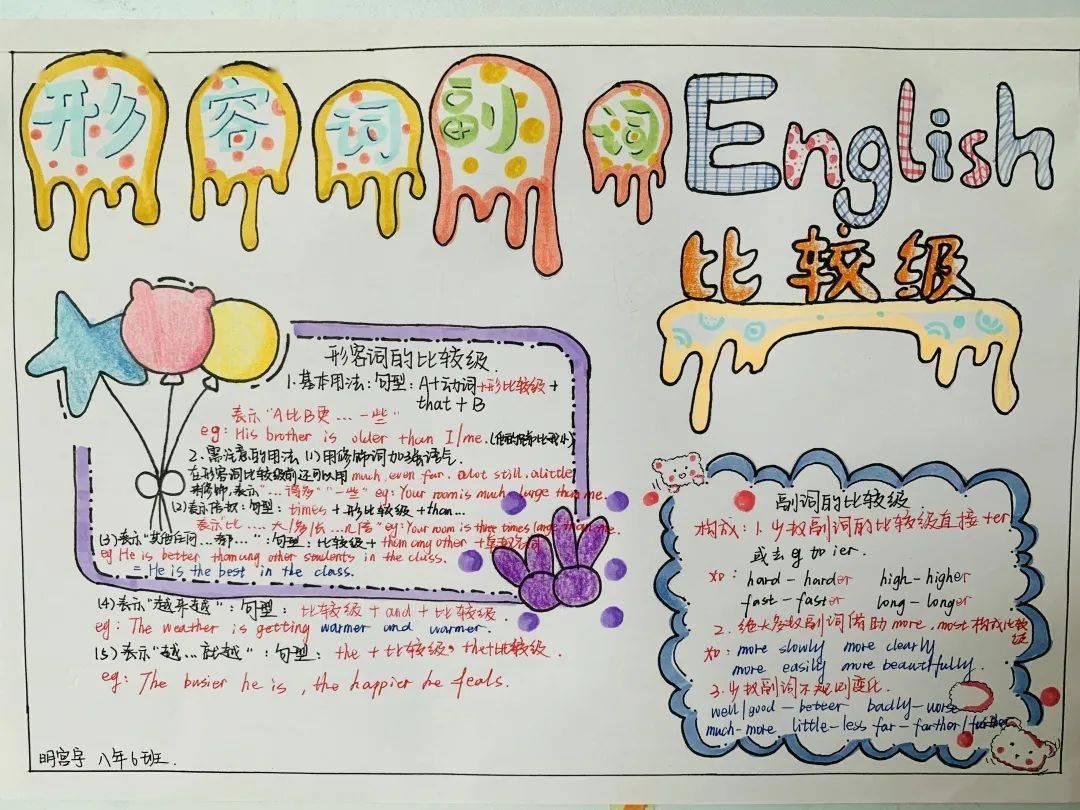 形容词副词 English
比较级
形容词的比较级
1.基本用法:句型:A+动词+形比较级+
that+B
表示"A比B更…一些"
eg: His brother is older than I/me.
2.需注意的用法 (1)用修饰词加强语气
在形容词比较级前还可以用much, even far. alot still. alittle
来修饰,表示"…得多""一些" eg: Your room is much large than me.
(2)表示倍数:句型:times+形比较级+than…
表示"比…大/多/长…几倍" eg: Your room is three times large than me.
(3)表示"其他任何…都…":句型:比较级+than any other+单数名词
eg He is better than ang other students in the class.
= He is the best in the class.
(4)表示"越来越":句型:比较级+and+比较级.
eg: The weather is getting warmer and warmer.
(5)表示"越…就越":句型:the+比较级,the+比较级.
eg: The busier he is, the happier he feals.
副词的比较级
构成:1.少数副词的比较级直接+er
或去y to ier.
如: hard-harder high-higher
fast-faster long-longer
2.绝大多数副词借助more, most构成比较级
如: more slowly more clearly
more easily more beautifully.
3.少数副词不规则变化.
well/good-better badly-worse
much-more little-less far-farther/further
明宫宇 八年6班.